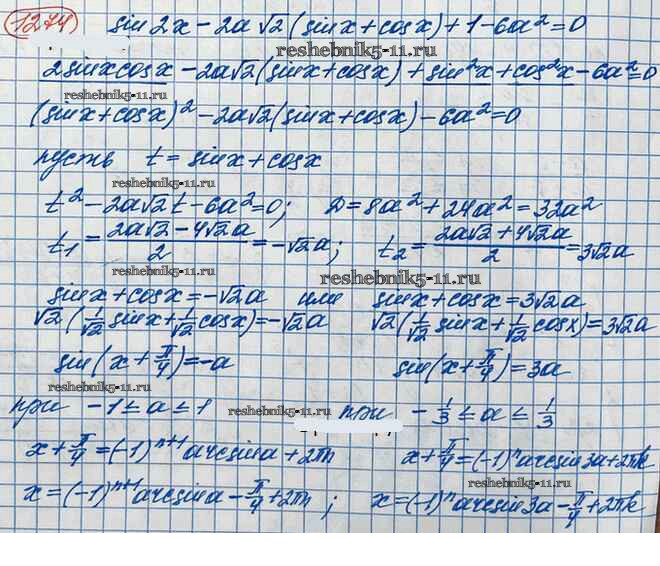 1274) sin 2x - 2a√2 (sinx + cosx) + 1 - 6a² = 0
reshebnik5-11.ru
2sinxcosx - 2a√2 (sinx + cosx) + sin²x + cos²x - 6a² = 0
reshebnik5-11.ru
(sinx + cosx)² - 2a√2 (sinx + cosx) - 6a² = 0
пусть t = sinx + cosx
reshebnik5-11.ru
t² - 2a√2t - 6a² = 0; D = 8a² + 24a² = 32a²
t₁ = (2a√2 - 4√2a)/2 = -√2a; t₂ = (2a√2 + 4√2a)/2 = 3√2a
reshebnik5-11.ru
reshebnik5-11.ru
sinx + cosx = -√2a или sinx + cosx = 3√2a
√2 (1/√2 sinx + 1/√2 cosx) = -√2a √2 (1/√2 sinx + 1/√2 cosx) = 3√2a
sin (x + π/4) = -a sin (x + π/4) = 3a
reshebnik5-11.ru
при -1 ≤ a ≤ 1 при -1/3 ≤ a ≤ 1/3
reshebnik5-11.ru
x + π/4 = (-1)ⁿ⁺¹ arcsin a + 2πn x + π/4 = (-1)ⁿ arcsin 3a + 2πk
reshebnik5-11.ru
x = (-1)ⁿ⁺¹ arcsin a - π/4 + 2πn; x = (-1)ⁿ arcsin 3a - π/4 + 2πk